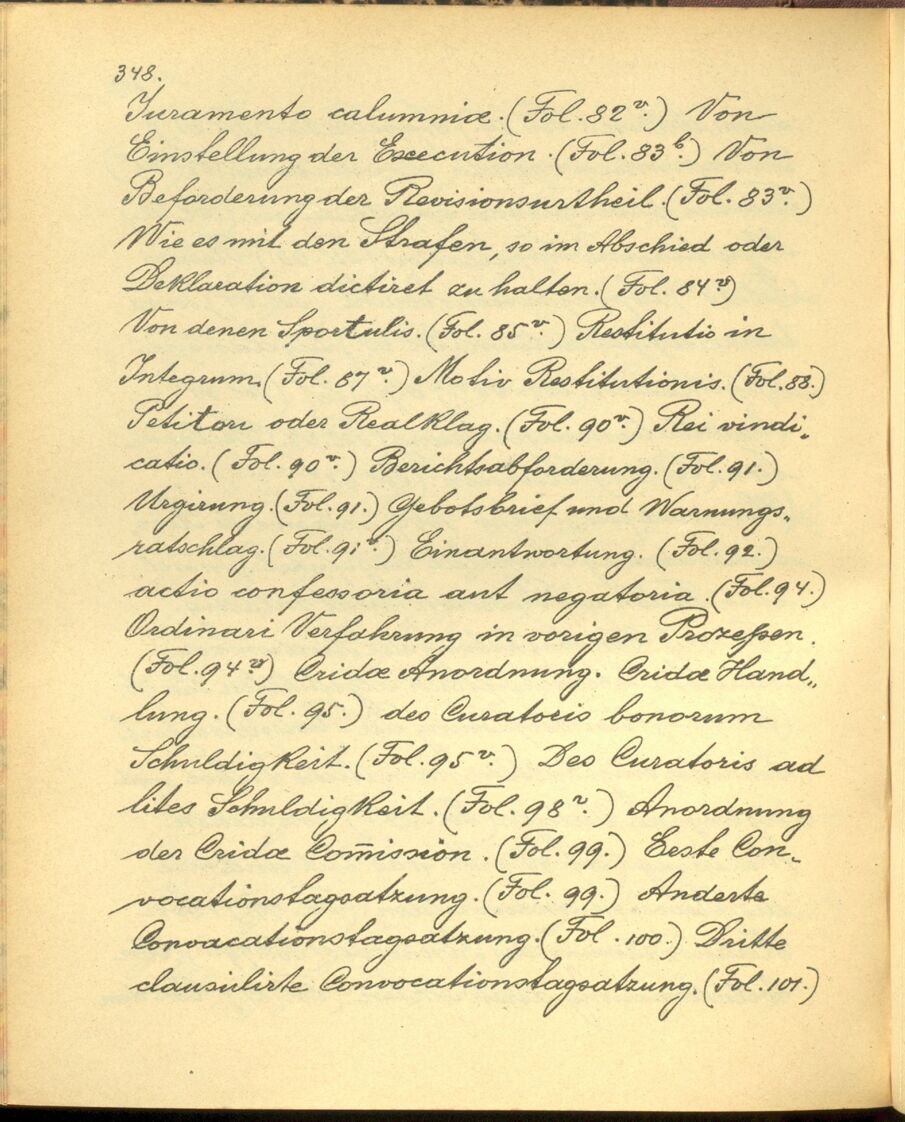 348.
Juramento calumniæ. (Fol. 82ᵛ.) Von
Einstellung der Execution. (Fol. 83ᵇ.) Von
Beforderung der Revisionsurtheil. (Fol. 83ᵛ.)
Wie es mit den Strafen, so im Abschied oder
Deklaration dictiret zu halten. (Fol. 84ᵛ)
Von denen Sportulis. (Fol. 85ᵛ.) Restitutio in
Integrum. (Fol. 87ᵛ.) Motiv Restitutionis. (Fol. 88.)
Petitori oder Realklag. (Fol. 90ᵛ.) Rei vindi„
catio. (Fol. 90ᵛ.) Berichtsabforderung. (Fol. 91.)
Urgirung. (Fol. 91.) Gebotsbrief und Warnungs„
ratschlag. (Fol. 91ᵛ.) Einantwortung. (Fol. 92.)
actio confessoria aut negatoria. (Fol. 94.)
Ordinari Verfahrung in vorigen Prozeßen.
(Fol. 94ᵛ) Cridæ Anordnung. Cridæ Hand„
lung. (Fol. 95.) des Curatoris bonorum
Schuldigkeit. (Fol. 95ᵛ.) Des Curatoris ad
lites Schuldigkeit. (Fol. 98ᵛ.) Anordnung
der Cridæ Com̅ission. (Fol. 99.) Erste Con„
vocationstagsatzung. (Fol. 99.) Anderte
Convacationstagsatzung. (Fol. 100.) Dritte
clausulirte Convocationstagsatzung. (Fol. 101.)